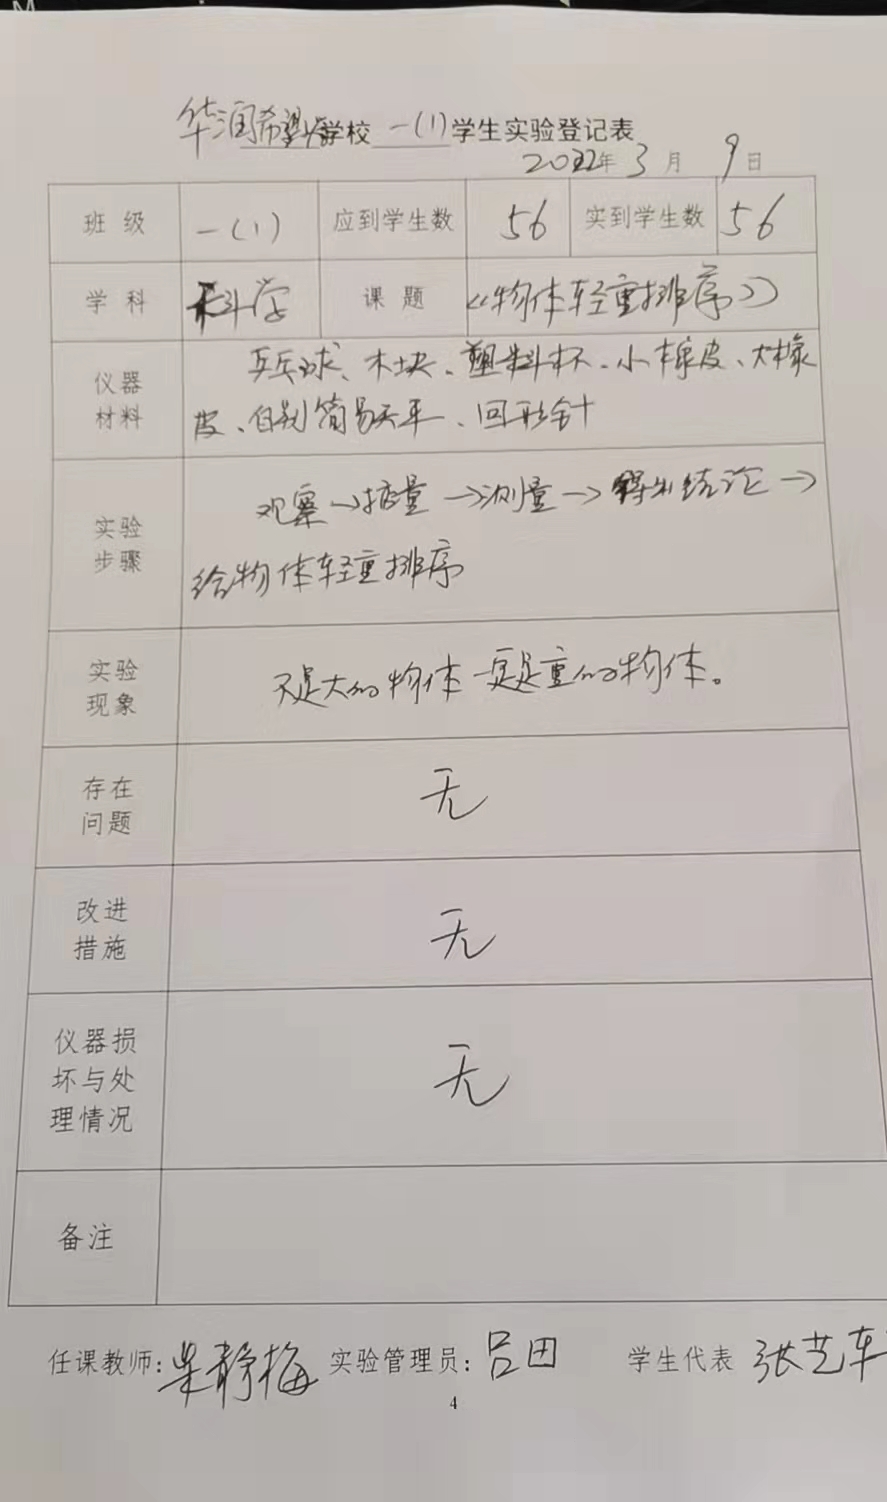 华润希望小学学校 一(1) 学生实验登记表
2022年 3 月 9 日
班 级 一(1) 应到学生数 56 实到学生数 56
学 科 科学 课 题 《物体轻重排序》
仪器材料 乒乓球、木块、塑料杯、小橡皮、大橡
皮、自制简易天平、回形针
实验步骤 观察→掂量→测量→得出结论→
给物体轻重排序
实验现象 不是大的物体一定是重的物体。
存在问题 无
改进措施 无
仪器损坏与处理情况 无
备注
任课教师: 吴静梅 实验管理员: 吕田 学生代表 张艺
4